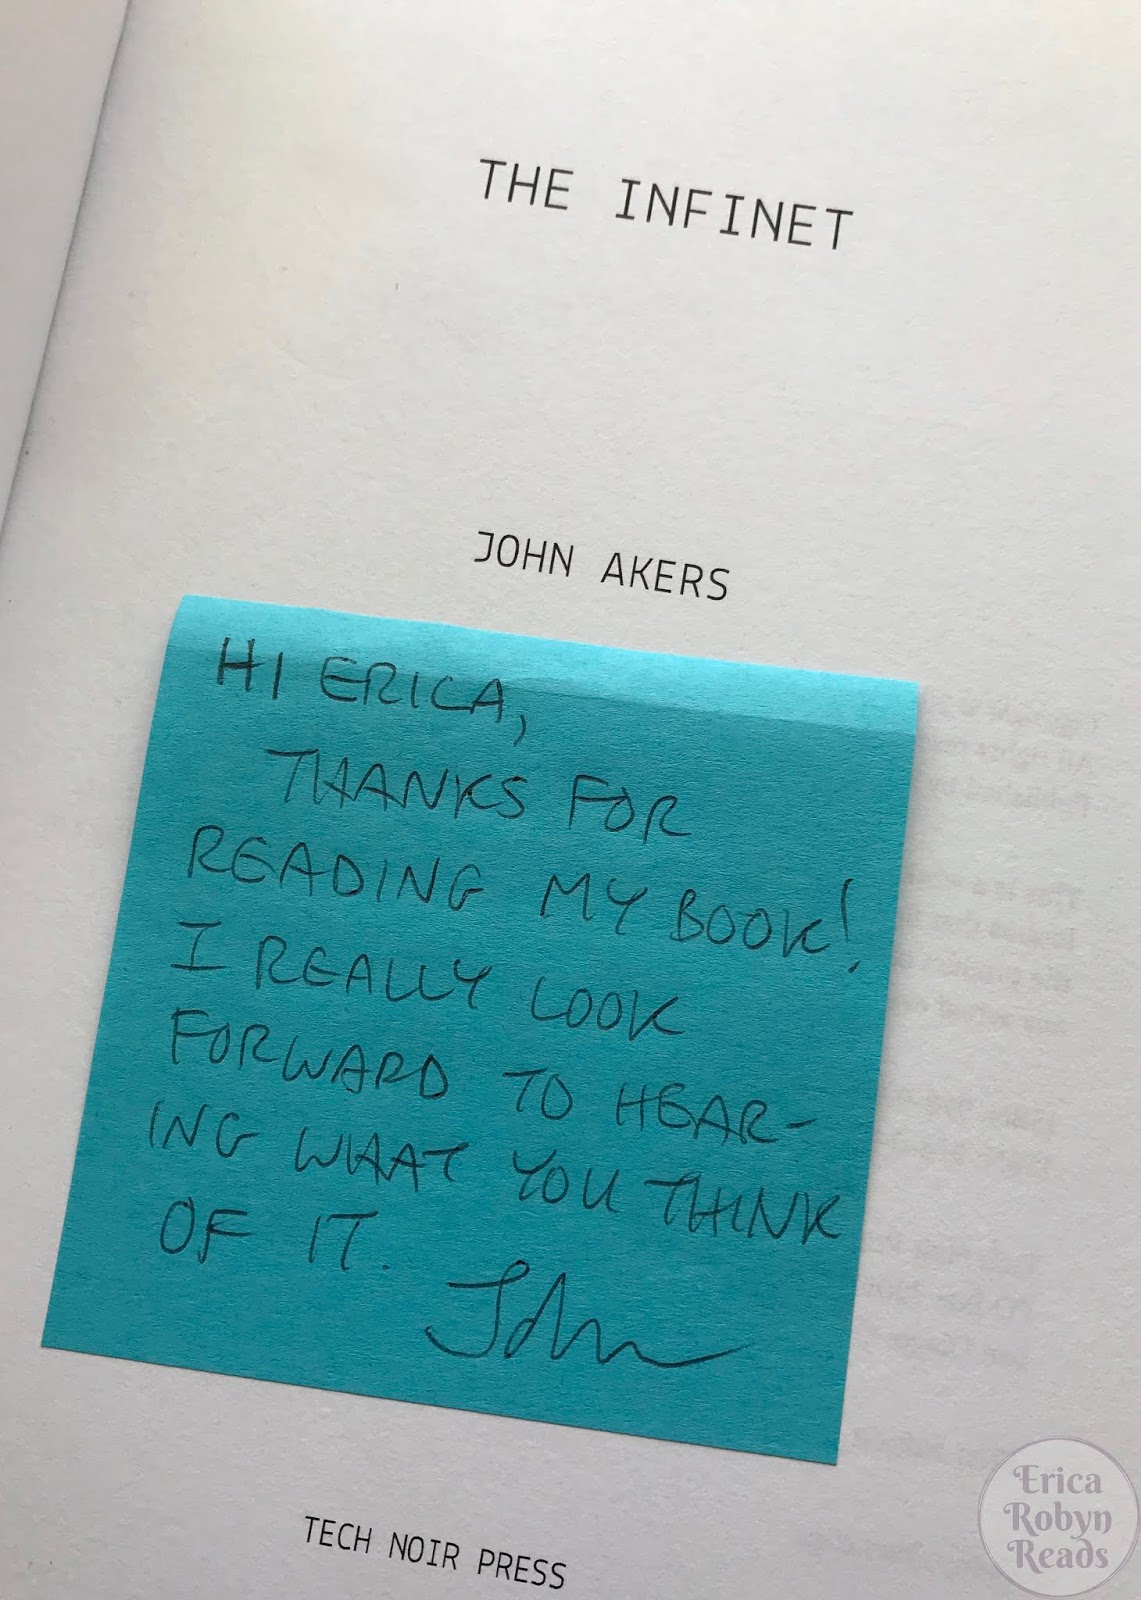 THE INFINET
JOHN AKERS
HI ERICA,
THANKS FOR
READING MY BOOK!
I REALLY LOOK
FORWARD TO HEAR-
ING WHAT YOU THINK
OF IT.
John
TECH NOIR PRESS
Erica
Robyn
Reads